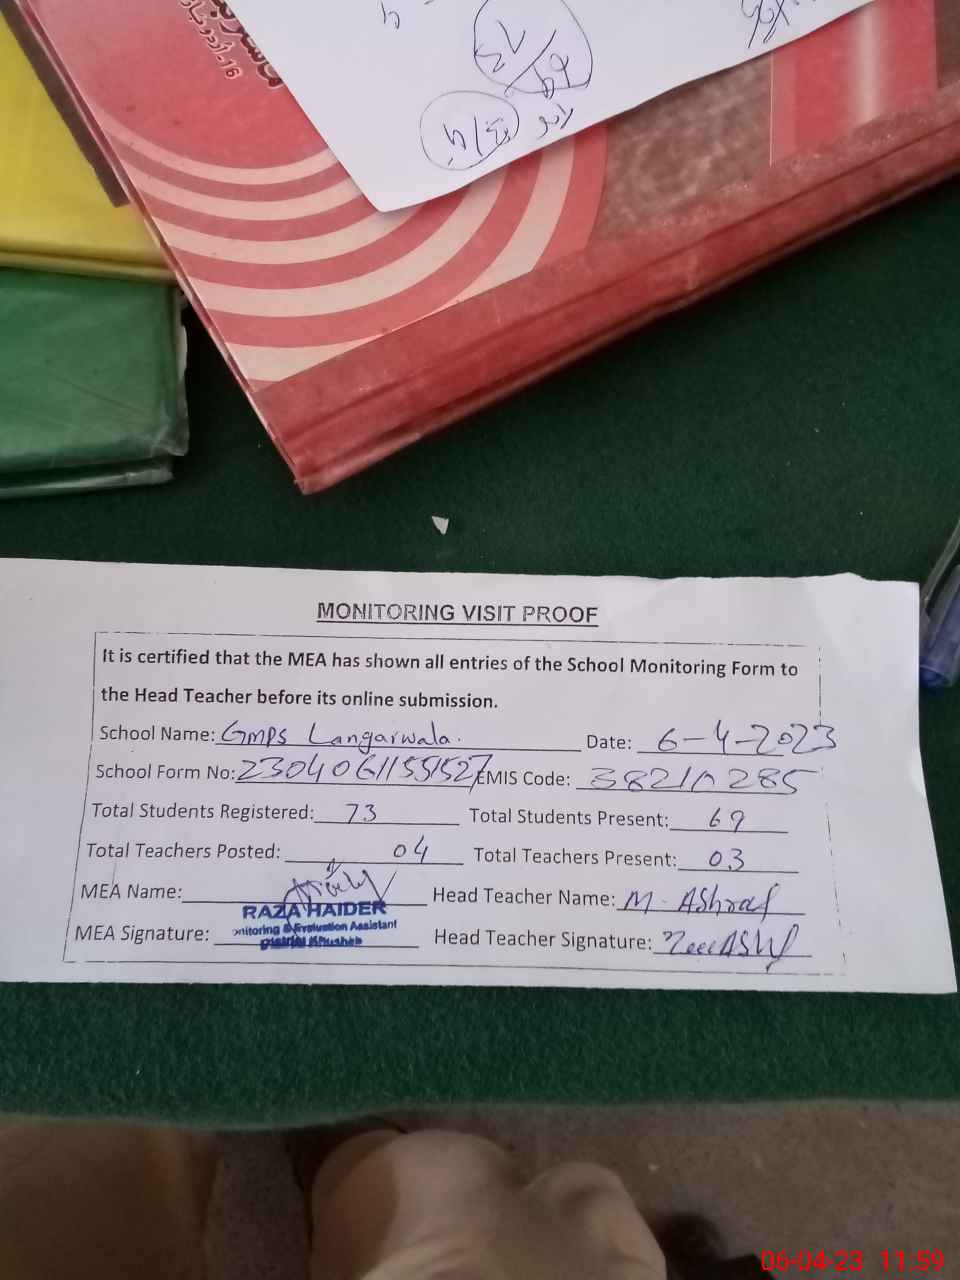 16-اُردو بازار
73
69
MONITORING VISIT PROOF
It is certified that the MEA has shown all entries of the School Monitoring Form to
the Head Teacher before its online submission.
School Name: GMPS Langarwala. Date: 6-4-2023
School Form No: 23040611551527 EMIS Code: 38210285
Total Students Registered: 73 Total Students Present: 69
Total Teachers Posted: 04 Total Teachers Present: 03
MEA Name: Head Teacher Name: M. AShraf
RAZA HAIDER
Monitoring & Evaluation Assistant
MEA Signature: District Khushab Head Teacher Signature:
06-04-23 11:59